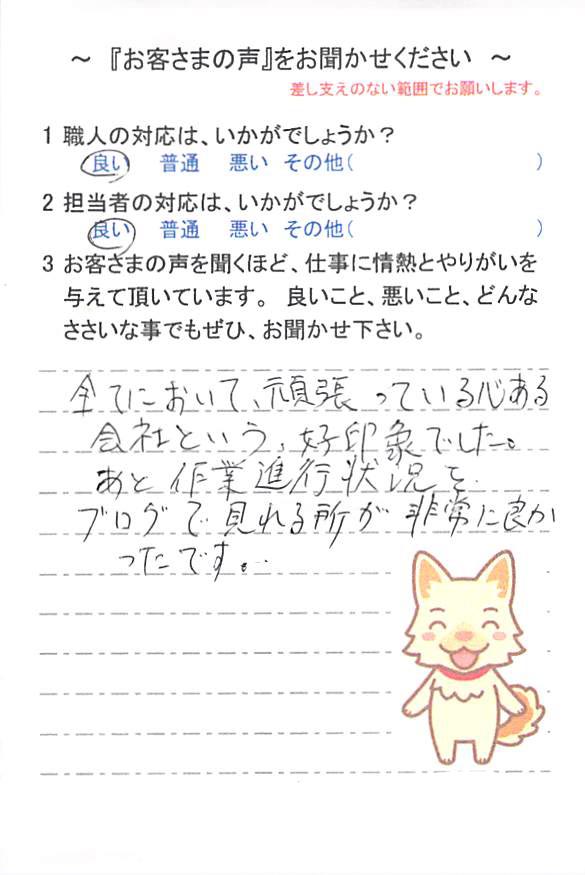 ～ 『お客さまの声』をお聞かせください ～
差し支えのない範囲でお願いします。
1 職人の対応は、いかがでしょうか？
良い 普通 悪い その他( )
2 担当者の対応は、いかがでしょうか？
良い 普通 悪い その他( )
3 お客さまの声を聞くほど、仕事に情熱とやりがいを
与えて頂いています。 良いこと、悪いこと、どんな
ささいな事でもぜひ、お聞かせ下さい。
全てにおいて、頑張っている心ある
会社という、好印象でした。
あと作業進行状況を
ブログで見れる所が非常に良か
ったです。